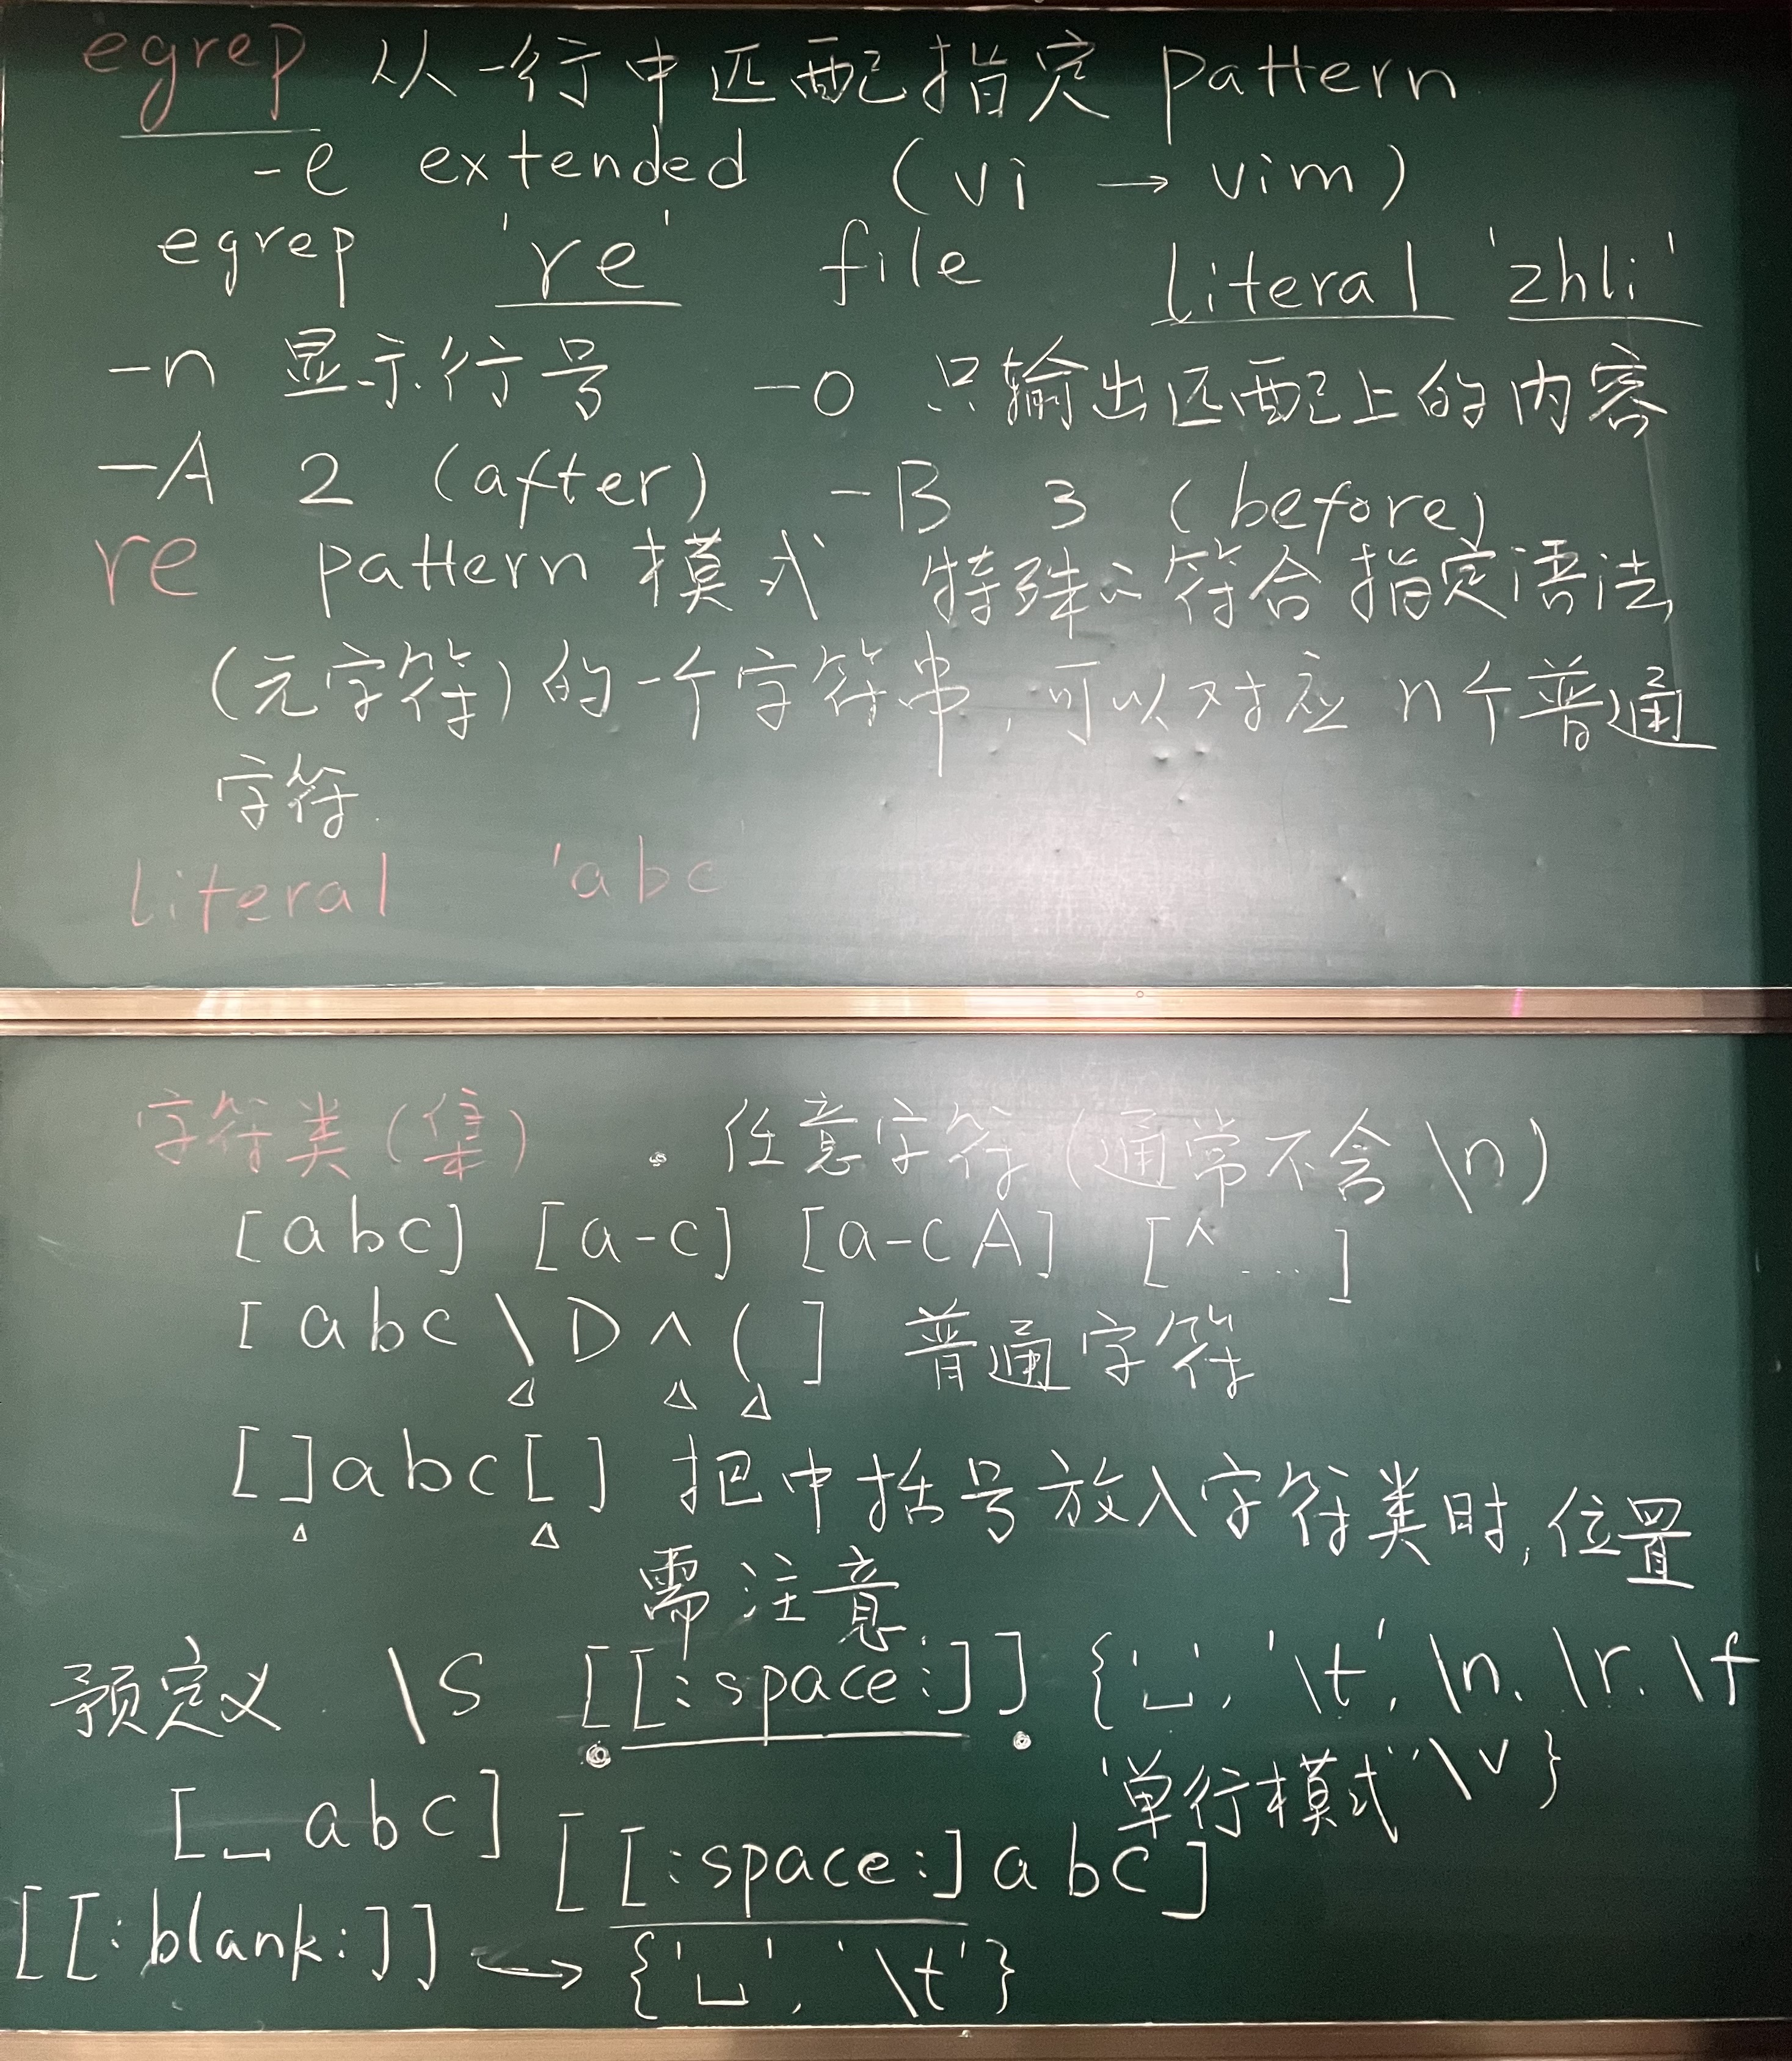 egrep 从一行中匹配指定 pattern
-e extended (vi → vim)
egrep 're' file literal 'zhli'
-n 显示行号 -o 只输出匹配上的内容
-A 2 (after) -B 3 (before)
re pattern 模式 特殊、符合指定语法
(元字符)的一个字符串,可以对应 n个普通
字符.
literal 'abc
字符类(集) . 任意字符(通常不含\n)
[abc] [a-c] [a-cA] [^ ...]
[abc\D^(] 普通字符
[]abc[] 把中括号放入字符类时,位置
需注意
预定义 \s [[:space:]] {'␣', '\t', \n. \r. \f
"单行模式" \v}
[␣abc] [[:space:]abc]
[[:blank:]] ↔ {'␣', '\t'}